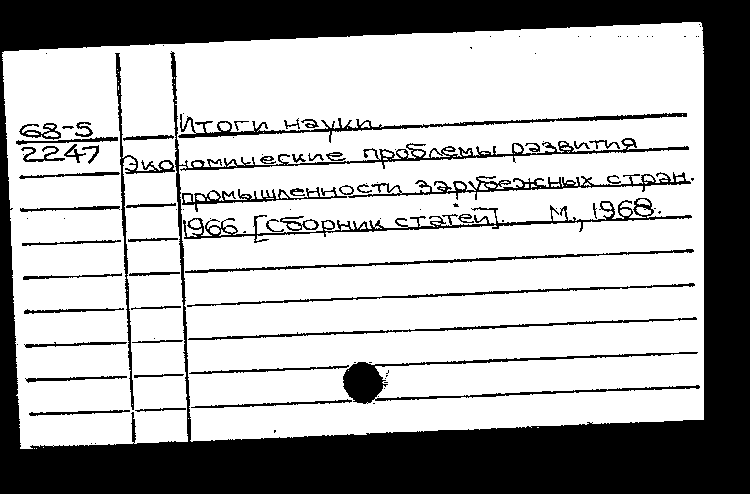 68-5
2247
Итоги науки.
Экономические проблемы развития
промышленности зарубежных стран.
1966. [Сборник статей]. М., 1968.